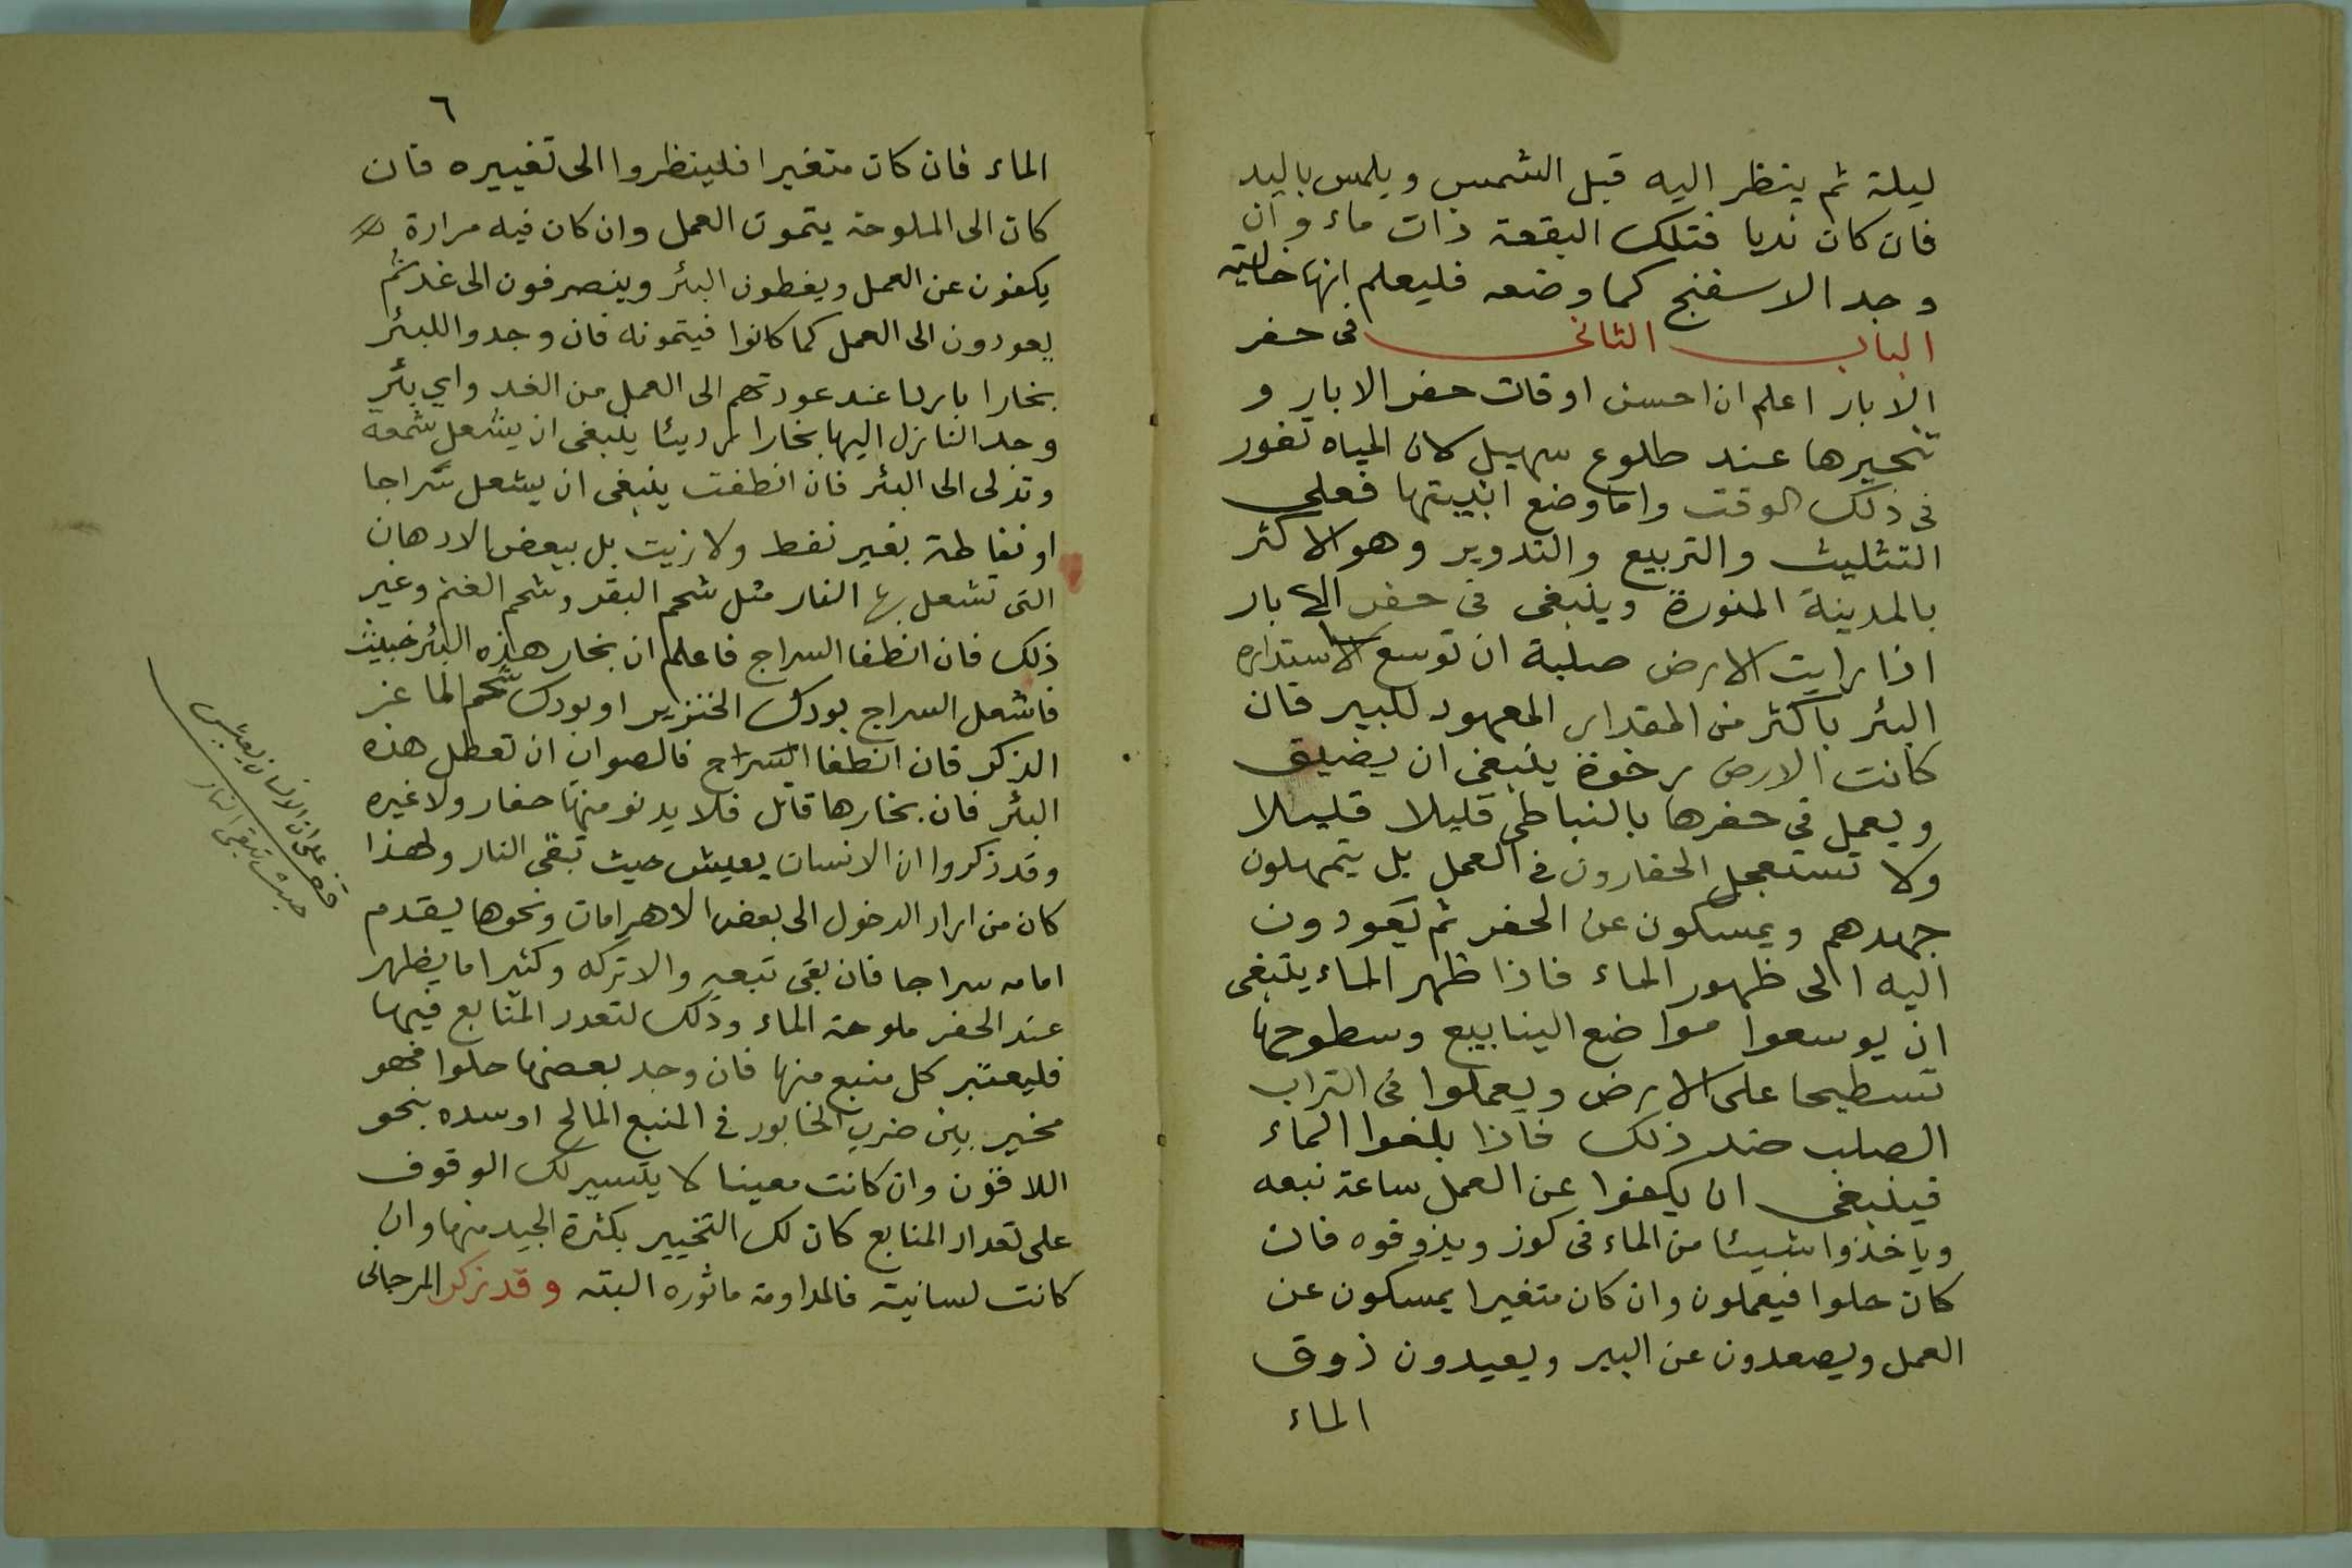 ليلة ثم ينظر اليه قبل الشمس ويلمس باليد
فان كان نديا فتلك البقعة ذات ماء وان
وجد الاسفنج كما وضعه فليعلم انها خالية
الباب الثانى فى حفر
الابار اعلم ان احسن اوقات حفر الابار و
تنحيرها عند طلوع سهيل لان المياه تغور
فى ذلك الوقت واما وضع ابنيتها فعلى
التثليث والتربيع والتدوير وهو الاكثر
بالمدينة المنورة وينبغى فى حفر الابار
اذا رايت الارض صلبة ان توسع الاستداره
البئر باكثر من المقدار المعهود للبير فان
كانت الارض رخوة ينبغى ان يضيق
ويعمل فى حفرها بالنباطى قليلا قليلا
ولا تستعجل الحفارون فى العمل بل يتمهلون
جهدهم ويمسكون عن الحفر ثم يعودون
اليه الى ظهور الماء فاذا ظهر الماء ينبغى
ان يوسعوا مواضع الينابيع وسطوحها
تسطيحا على الارض ويعملوا فى التراب
الصلب ضد ذلك فاذا بلغوا الماء
فينبغى ان يكفوا عن العمل ساعة نبعه
وياخذوا شيئا من الماء فى كوز ويذوقوه فان
كان حلوا فيعملون وان كان متغيرا يمسكون عن
العمل ويصعدون عن البير ويعيدون ذوق
الماء
٦
الماء فان كان متغيرا فلينظروا الى تغييره فان
كان الى الملوحة يتمون العمل وان كان فيه مرارة
يكفون عن العمل ويغطون البئر وينصرفون الى غد ثم
يعودون الى العمل كما كانوا فيتمونه فان وجدوا للبئر
بخارا باردا عند عودتهم الى العمل من الغد واي بئر
وجد النازل اليها بخارا رديئا ينبغى ان يشعل شمعة
وتدلى الى البئر فان انطفت ينبغى ان يشعل سراجا
او نفاطة بغير نفط ولا زيت بل ببعض الادهان
التى تشعل بها النار مثل شحم البقر وشحم الغنم وغير
ذلك فان انطفا السراج فاعلم ان بخار هذه البئر خبيث
فاشعل السراج بودك الخنزير او بودك شحم الماعز
الذكر فان انطفا السراج فالصواب ان تعطل هذه
البئر فان بخارها قاتل فلا يدنو منها حفار ولا غيره
وقد ذكروا ان الانسان يعيش حيث تبقى النار ولهذا
كان من اراد الدخول الى بعض الاهرامات ونحوها يقدم
امامه سراجا فان بقى تبعه والا تركه وكثيرا ما يظهر
عند الحفر ملوحة الماء وذلك لتعدد المنابع فيها
فليعتبر كل منبع منها فان وجد بعضها حلوا فهو
مخير بين ضرب الخابور فى المنبع المالح او سده بنحو
اللاقون وان كانت معينا لا يتيسر لك الوقوف
على تعداد المنابع كان لك التخيير بكثرة الجيد منها وان
كانت لسانية فالمداومة ماثوره البته وقد ذكر المرجانى
قف على ان الانسان يعيش
حيث تبقى النار